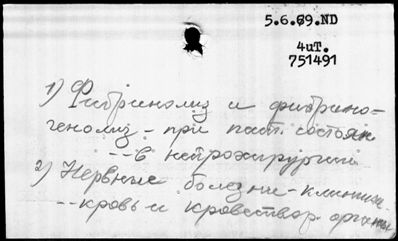 5.6.69.ND
4иТ.
751491
1) Фибринолиз и фибрино-
генолиз - при пат. состоян
-- в нейрохирургии
2) Нервные болезни - клиника
-- кровь и кроветвор. органы